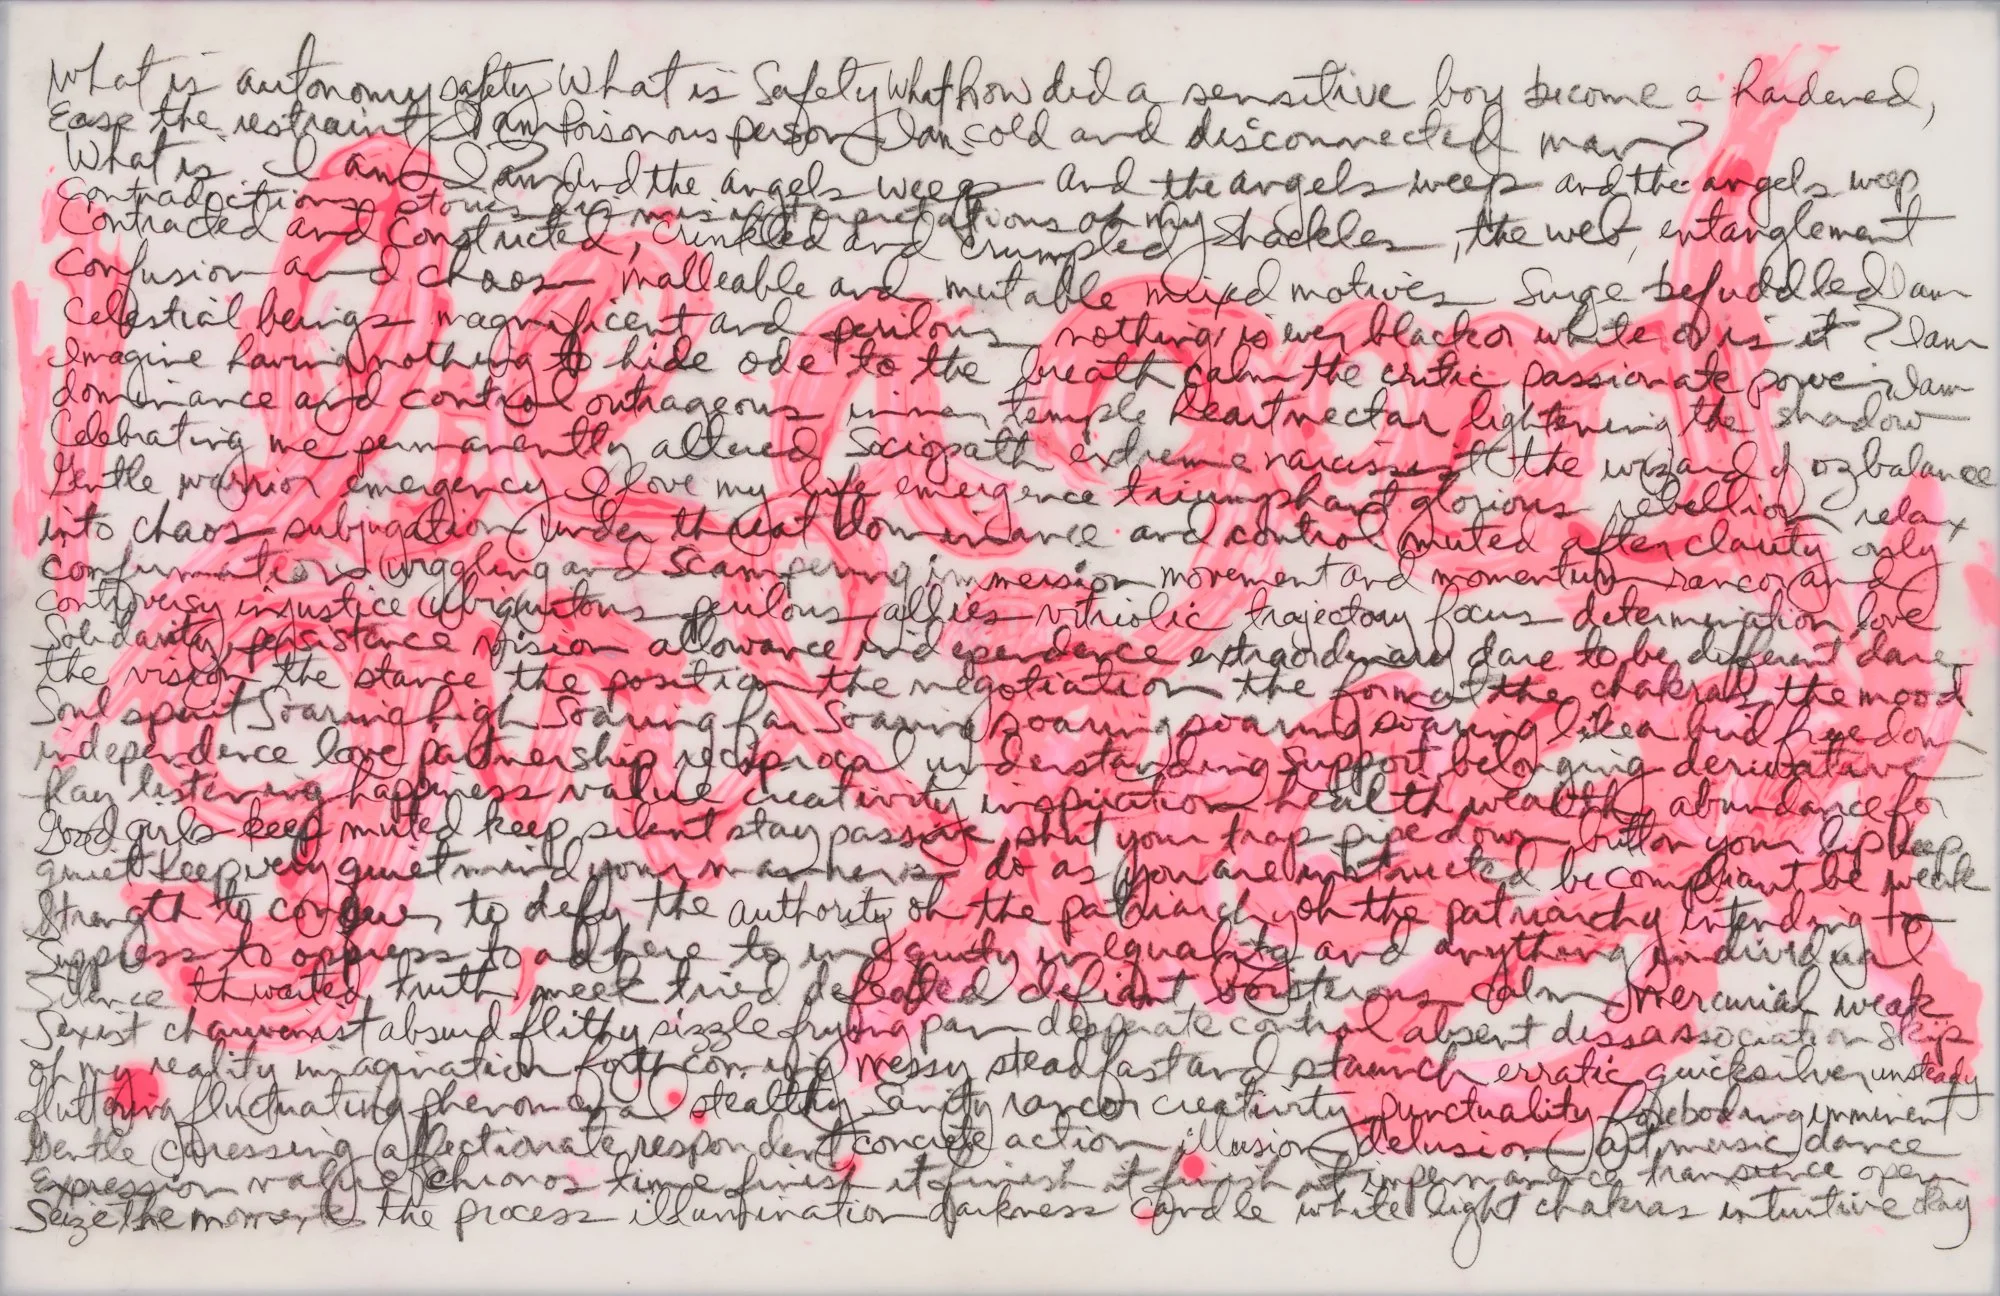 What is autonomy safety What is Safety What how did a sensitive boy become a hardened,
Ease the restraint I am Poisonous person I am cold and disconnected man?
What is I am I am And the angels weep and the angels weep and the angels weep
Contradictions stories misinterpretations of my
Contracted and Constructed, crinkled and crumpled Shackles, the web, entanglement
Confusion and chaos malleable and mutable mixed motives Surge befuddled I am
Celestial beings magnificent and perilous nothing is ever black or white or is it? I am
Imagine having nothing to hide ode to the breath calm the critic passionate power I am
dominance and control outrageous inner temple heart nectar lightening the shadow
Celebrating me permanently altered Sociopath extreme narcissist the wizard of oz balance
Gentle warrior emergency I love my life emergence triumphant glorious rebellion relax
into chaos subjugation under threat dominance and control muted after clarity only
confirmation wriggling and Scampering immersion movement and momentum rancor and
controversy injustice ubiquitous perilous allies vitriolic trajectory focus determination love
Solidarity persistence vision allowance independence extraordinary dare to be different dare
the vision the stance the position the negotiation the format the chakras the mood
Soul spirit Soaring high Soaring far Soaring soaring soaring soaring like a bird freedom
independence love partnership reciprocal understanding Support belonging derivative
Play listening happiness value creativity inspiration health wealth abundance for
Good girls keep muted keep silent stay passive shut your trap pipe down button your lip keep
quiet keep very quiet mind your manners do as you are instructed be compliant be weak
Strength to conquer, to defy the authority of the patriarchy of the patriarchy intending to
Suppress to oppress to adhere to inequity inequality and anything individual
Silence thwarted truth meek tried defeated defiant boisterous calm mercurial weak
Sexist chauvinist absurd filthy sizzle frying pan desperate control absent dissassociation Skip
of my reality imagination forthcoming messy steadfast and staunch erratic quicksilver unsteady
fluttering fluctuating phenomenal stealthy Sanity rancor creativity punctuality foreboding imminent
Gentle caressing affectionate respondent concrete action illusion delusion art music dance
Expression value Chronos time finish it finish it finish it impermanence transience open
Seize the moment the process illumination darkness candle white light chakras intuitive okay